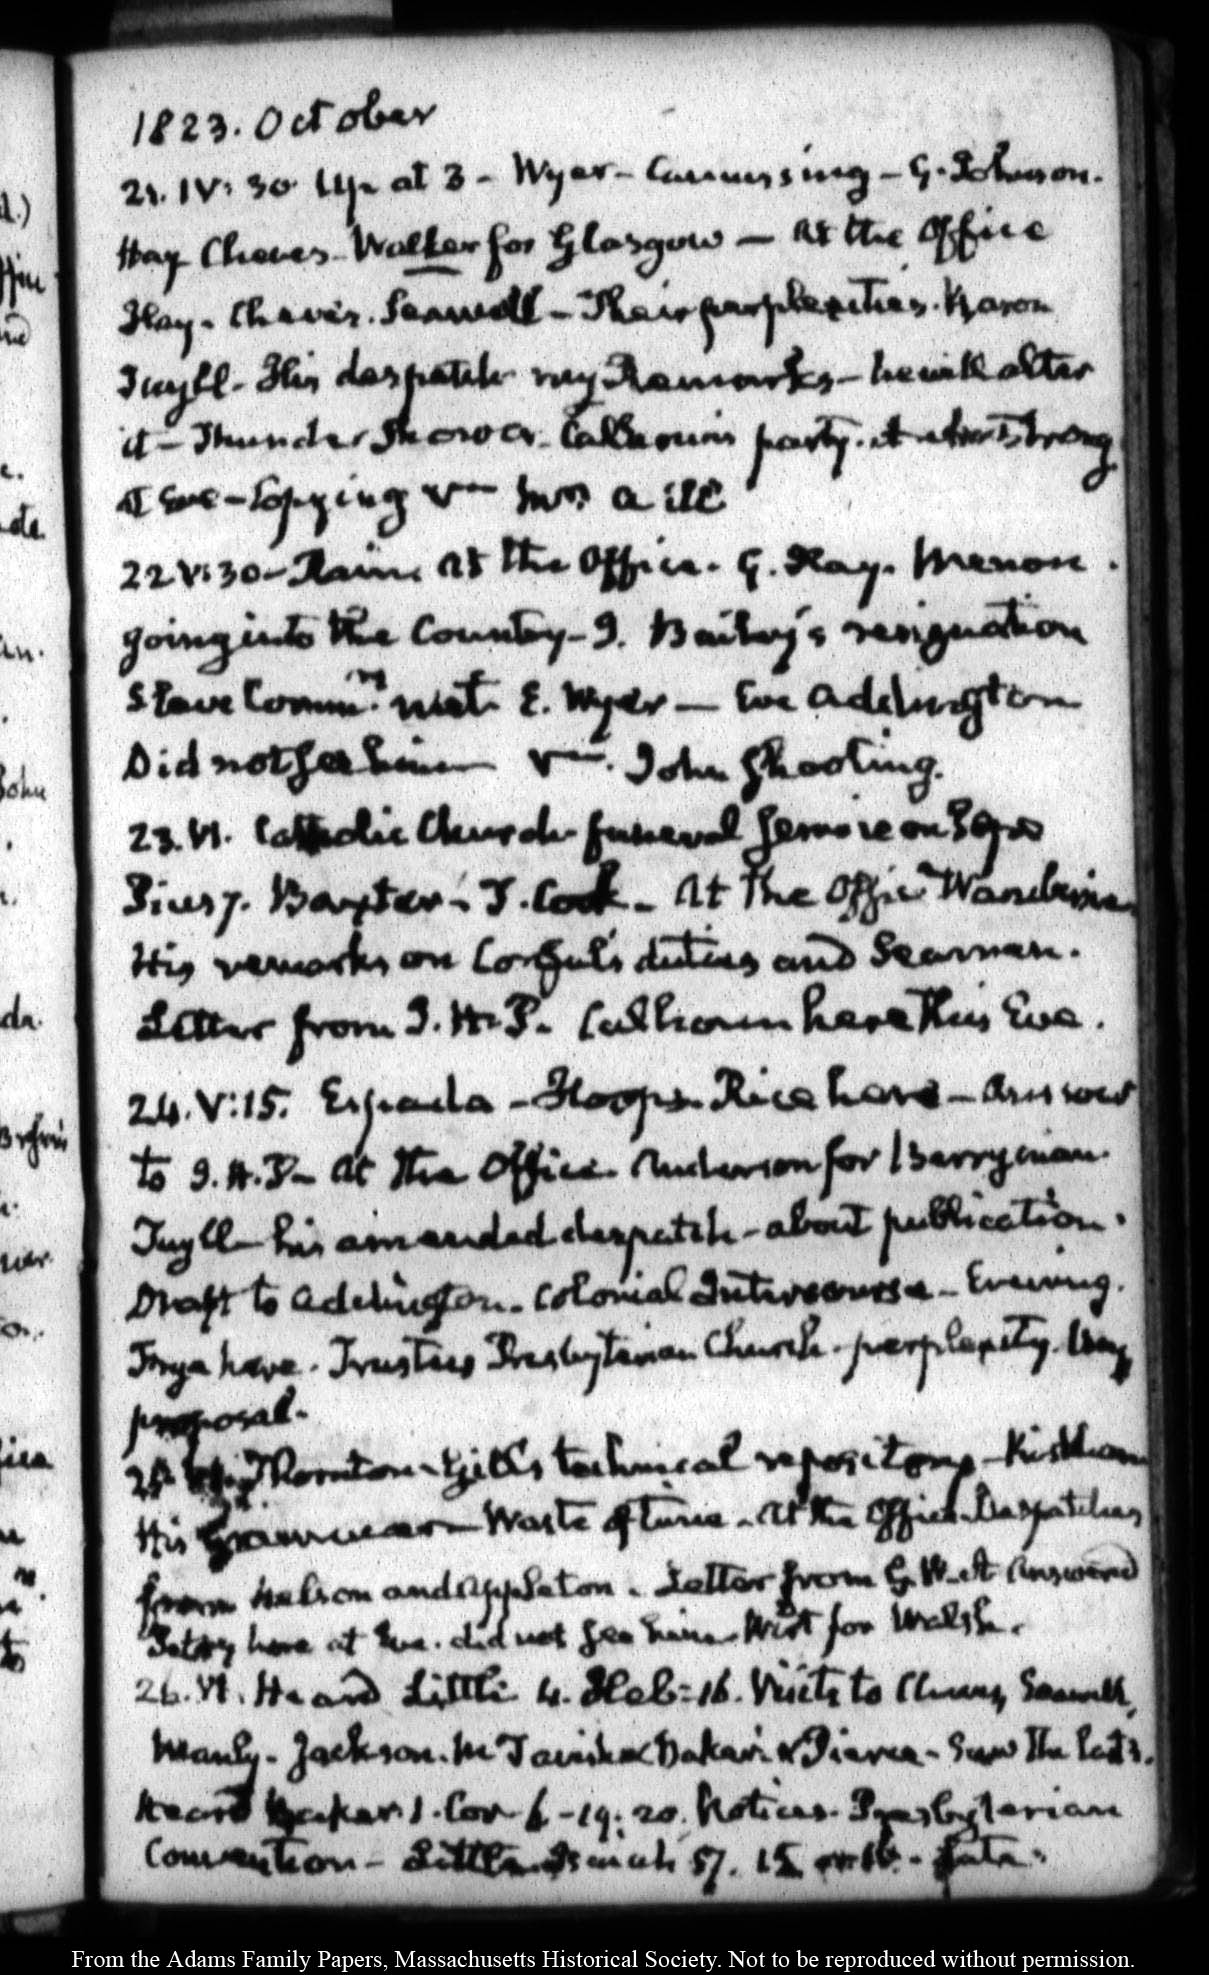 1823. October
21. IV: 30 Up at 3 - Wyer - Canvassing - G. Johnson.
Hay Cheves - Walker for Glasgow - At the Office
Hay. Cheves. Seawell - Their perplexities. Baron
Tuyll - His despatch my Remarks - he will alter
it - Thunder Shower. Calhoun's party. A strong
Eve - Copying Vn Mrs A ill
22 V: 30 - Rain. At the Office. G. Hay. Monroe.
going into the Country - J. Bailey's resignation
Slave Commn. met. E. Wyer - Eve Addington
Did not see him Vn. John Shooting.
23. VI. Catholic Church. funeral Service on Pope
Pius 7. Baxter - T. Cook - At the Office
His remarks on Consul's duties and Seamen.
Letter from J. H. P. Calhoun here this Eve.
24. V: 15. Espada - Hoops. Rice here - Answer
to J. H. P - At the Office. Anderson for Berryman.
Tuyll - his amended despatch - about publication.
Draft to Addington. Colonial Intercourse - Evening.
Frye here. Trustees Presbyterian Church. perplexity. my
proposal.
25. Thornton - Gill's technical repository - Kirkham
His Grammar - Waste of time. At the Office. Despatches
from Nelson and Appleton. Letter from G. W. A Answered
here at Eve. did not see him. Wirt for Walsh.
26. VI. Heard Little 4. Heb: 16. Visits to Cheves, Seawell,
Manly. Jackson. McTavish & Baker & Pierce - Saw the last.
Heard Baker. 1. Cor. 6 - 19: 20. Notices. Presbyterian
Convention - Little. Isaiah 57. 15 - Late.